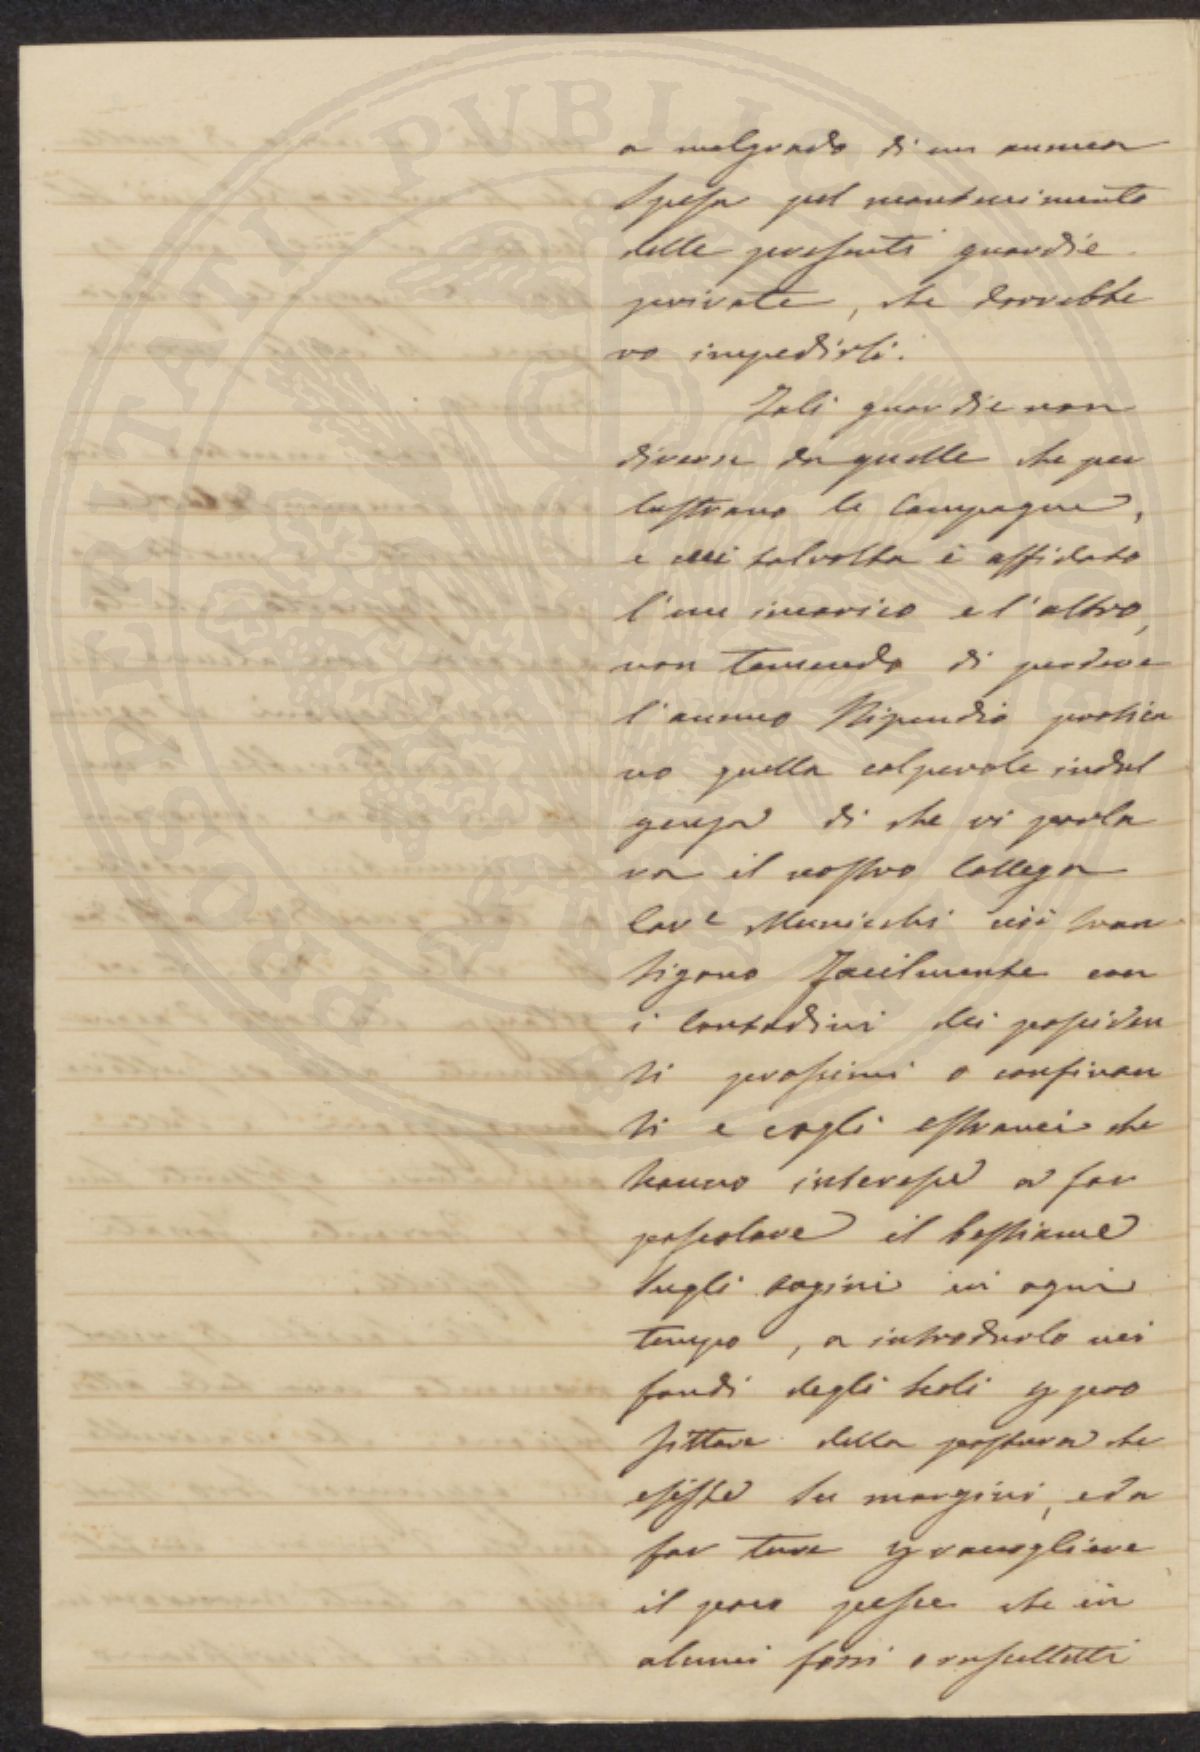 PROSPERITATI PUBLICAE AUGENDAE
a malgrado di un annua
spesa pel mantenimento
delle presenti guardie
private, che dovrebbe
ro impedirli.
Tali guardie non
diverse da quelle che per
lustrano le Campagne,
e cui talvolta è affidato
l'un incarico e l'altro,
non temendo di perdere
l'annuo stipendio pratica
no quella colpevole indul
genza di che vi parla
va il nostro Collega
Cav.e Municchi essi tran
sigono facilmente con
i Contadini dei possiden
ti prossimi o confinan
ti e cogli estranei che
hanno interesse a far
pascolare il bestiame
sugli argini in ogni
tempo, a introdurlo nei
fondi degli scoli p pro
fittare della pastura che
esiste su margini, e da
far ture p raccogliere
il poco pesce che in
alcuni fossi o ruscelletti